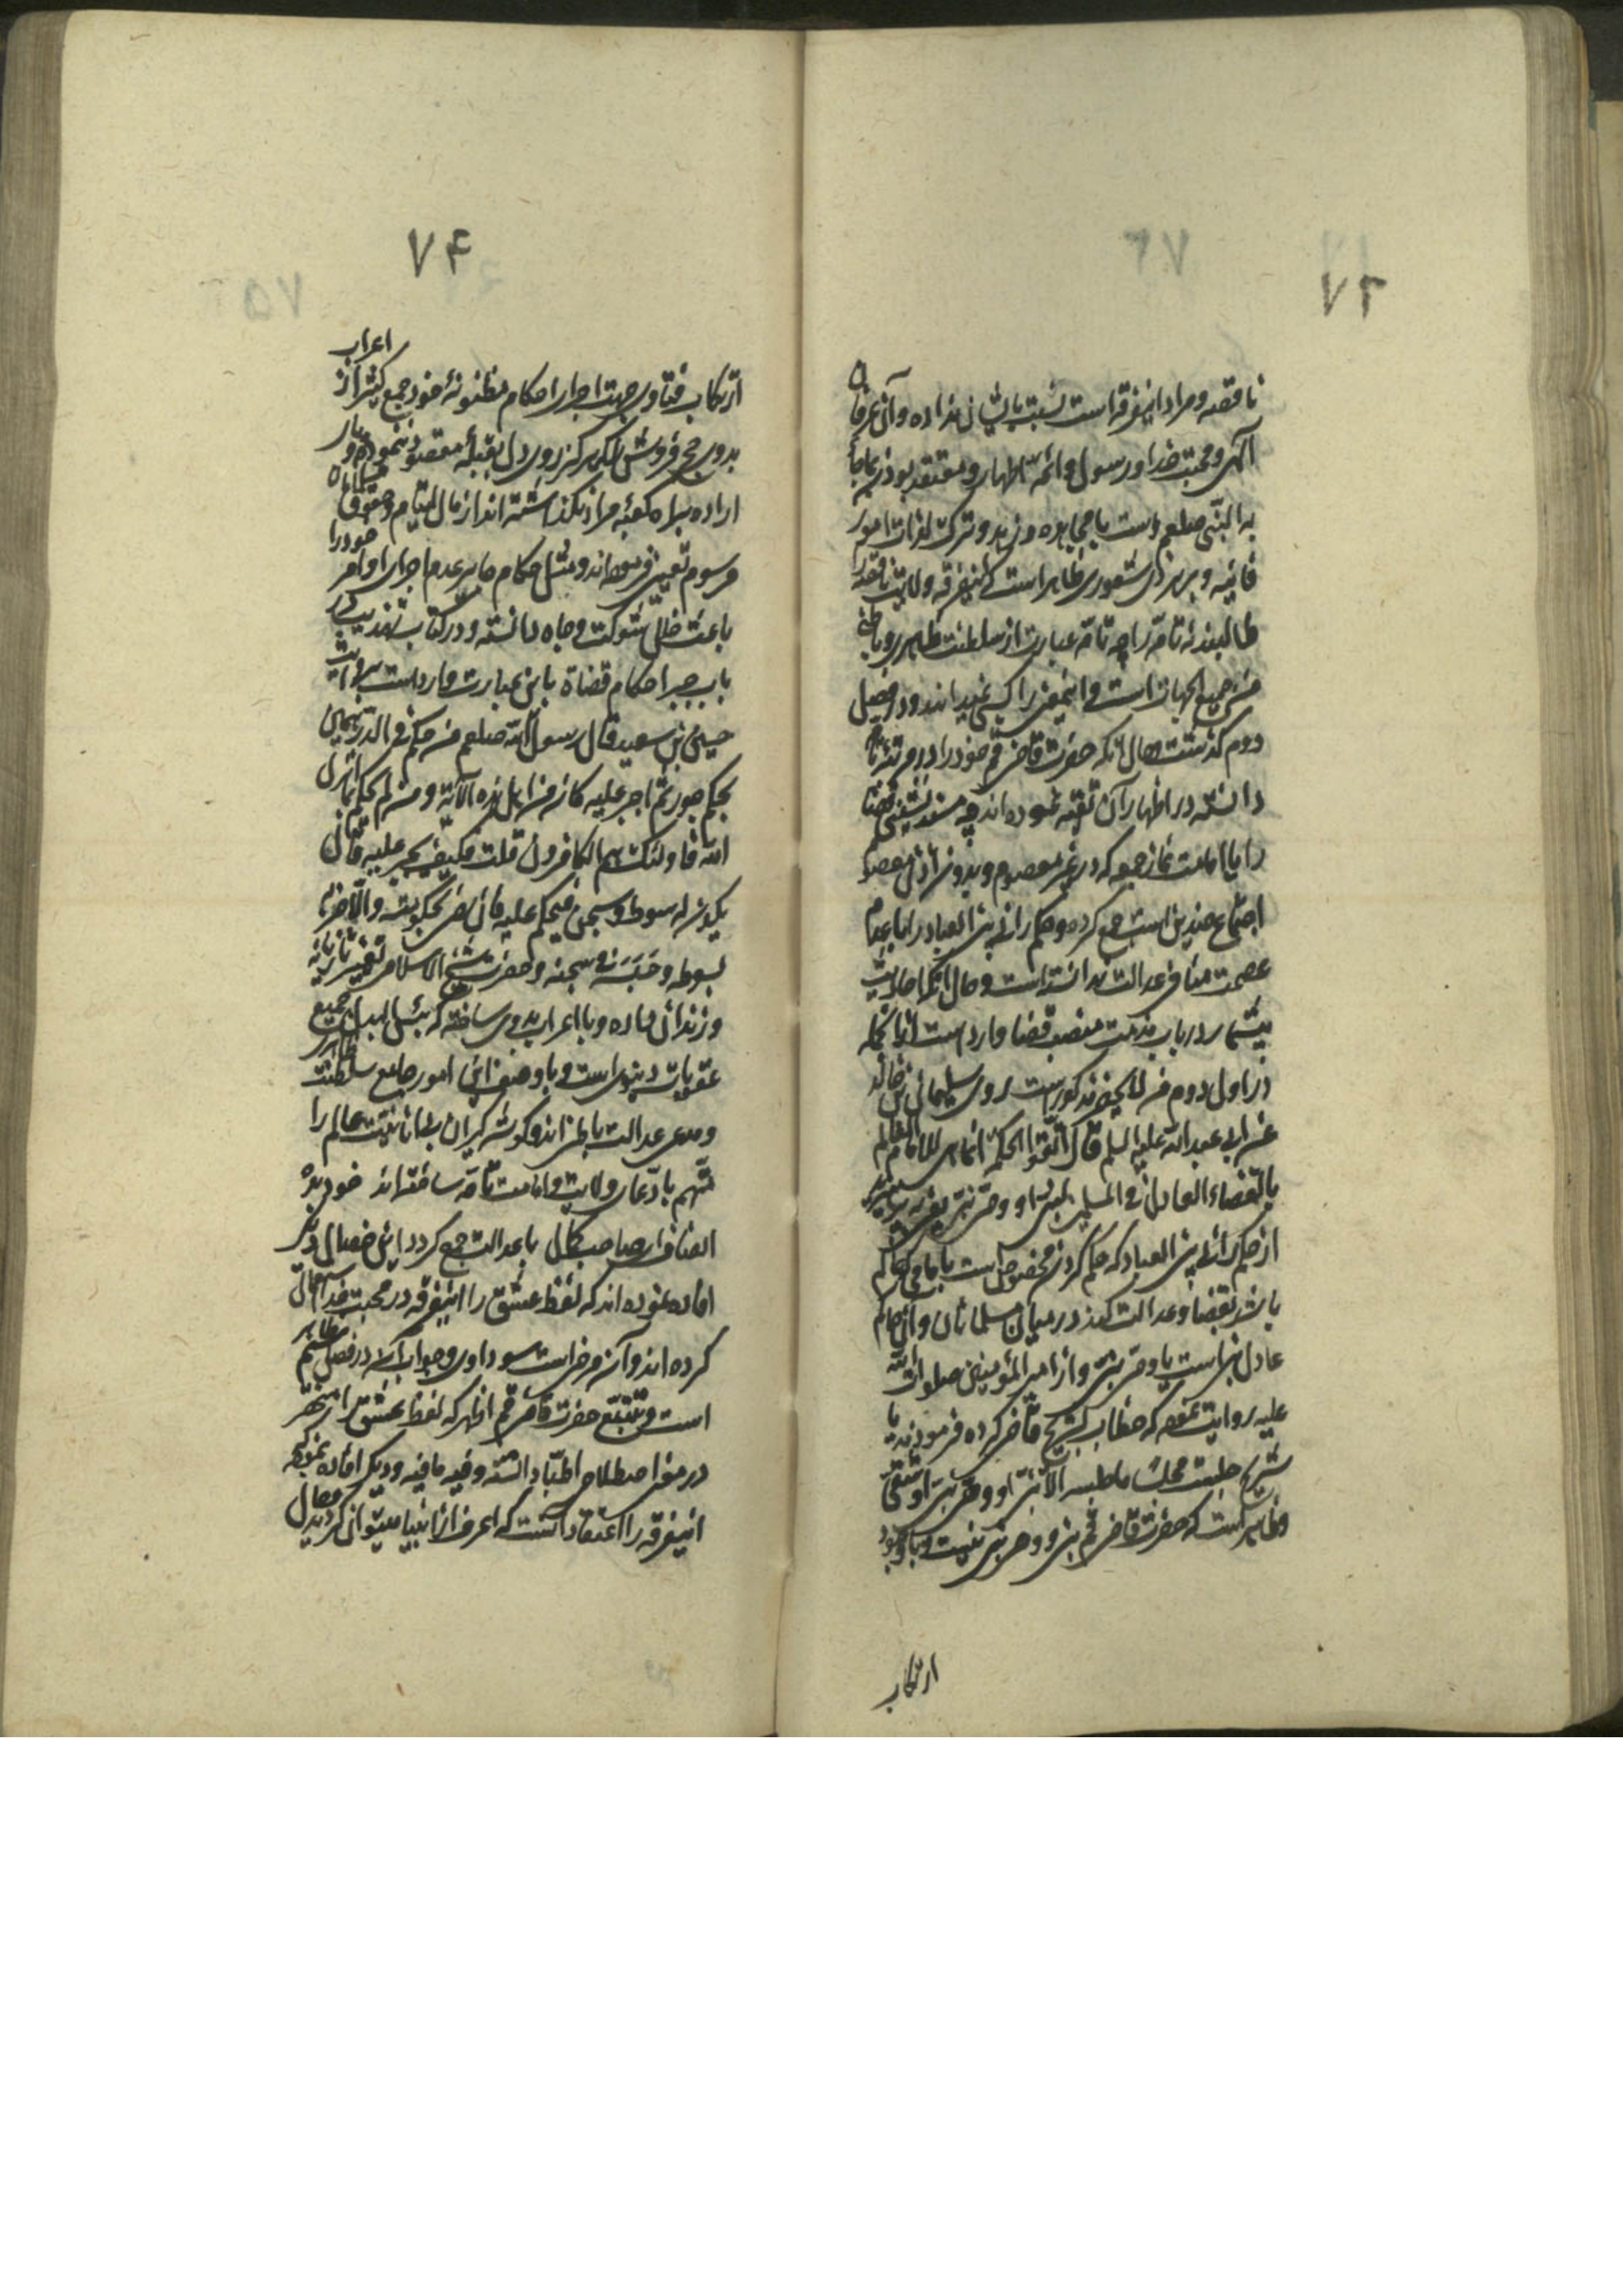 ۷۳
ناقصه و مراد اینفرقه است نسبت بایشان نداده و آن عرفان
آگهی و محبت خدا و رسول و ائمه اطهار و معتقد بودن بما جاء
به النبی صلعم است با مجاهده و زهد و ترک لذات امور
فانیه و بر هر ذی شعوری ظاهر است که اینفرقه ولایت ناقصه را
طالبند نه تامه را چه تامه عبارت از سلطنت ظاهری و باطنی
من جمیع الجهات است و اینمعنی را کسبی نمیدانند و در فصیل
دوم گذشت و حال آنکه حضرت قاضی قم خود را در مرتبه تامه
دانسته در اظهار آن تقیه نموده اند چه مسند نشینی قضا
را با امامت نماز جمعه که در غیر معصوم و بدون اذن معصوم
اجتماع ضدین است جمع کرده و حکم رانی بین العباد را با عدم
عصمت منافی عدالت ندانسته است و حال آنکه احادیث
بیشمار در باب مذمت منصب قضا وارد است از آنجمله
در اول دوم من لایحضر مذکور است روی سلیمان بن خالد
عن ابی عبد الله علیه السلم قال اتقوا الحکومة انما هی للامام العالم
بالقضاء العادل فی المسلمین لنبی او وصی نبی یعنی بپرهیزید
از حکم رانی بین العباد که حکم کردن مخصوص است بامامی که عالم
باشد بقضا و عدالت کند در میان مسلمانان و آن امام
عادل نبی است یا وصی نبی و از امیر المؤمنین صلوات الله
علیه روایت نموده که خطاب بشریح قاضی کرده فرمودند یا
شریح جلست مجلسا ما جلسه الا نبی او وصی نبی او شقی
و ظاهر است که حضرت قاضی قم نبی و وصی نبی نیست و با وجود
ارتکاب
۷۴
ارتکاب فتاوی جهت اجرای احکام مظنونه خود جمع کثیر از اعراب
بدوی حج فروش را که هرگز روی دل بقبله مقصود ننموده و بار
اراده براه کعبه مراد نگذاشته اند از مال ایتام و حقوق
مرسوم تعیین فرموده اند و مثل حکام جایر عدم اجرای اوامر خود را
باعث خلل شوکت و جاه دانسته و در کتاب تهذیب در
باب احکام قضاة باین عبارت وارد است بروایت
حسین بن سعید قال رسول الله صلعم من حکم فی الدرهمین
بحکم جور ثم اجبر علیه کان من اهل هذه الآیة و من لم یحکم بما انزل
الله فاولئک هم الکافرون قلت فکیف یجبر علیه قال
یکون له سوط و سجن فیحکم علیه فان رضی بحکومته و الا ضربه
بسوطه و حبسه فی سجنه و حضرت شیخ الاسلام تازیانه
و زندان داده و با اعراب بدوی ساخته که جمیع
عقوبات دنیوی است و با وصف این امور جامع سلطنت ظاهری
و مدعی عدالت باطنی اند و گوشه گیران عالم را
متهم بادعای ولایت و امامت تامه ساخته اند خود بده
انصاف ای صاحب کمال با عدالت جمع گردد این خصال دیگر
افاده نموده اند که لفظ عشق را اینفرقه در محبت خدا استعمال
کرده اند و آن مرضی است سوداوی و جواب آن در فصل ششم
است و تتبع حضرت قاضی قم ظاهر اظهر که لفظ عشق را منحصر
در مرض اصطلاح اطبا دانسته و فیه ما فیه و دیگر افاده نموده که
اینفرقه را اعتقاد آنست که اعرف از انبیا میتوان گردید و حال